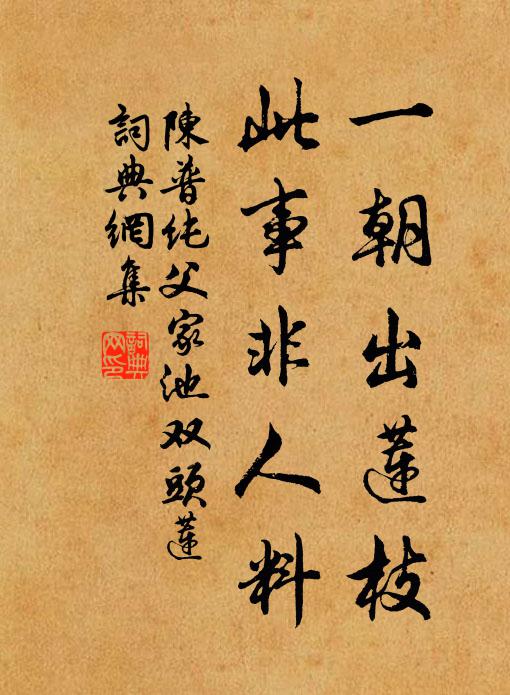 一朝出蓮枝
此事非人料
陳普純父家池双頭蓮
詞典網集
詞典
网印